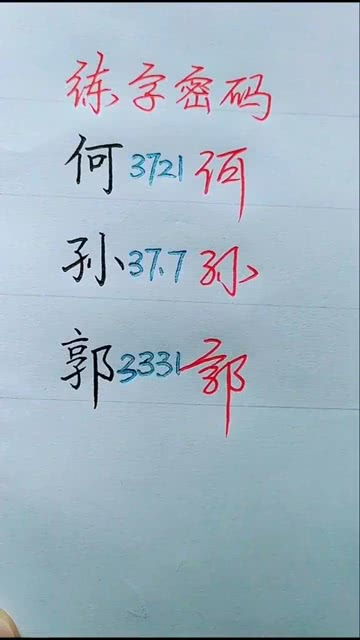 练字密码
何 3721 何
孙 37.7 孙
郭 3331 郭